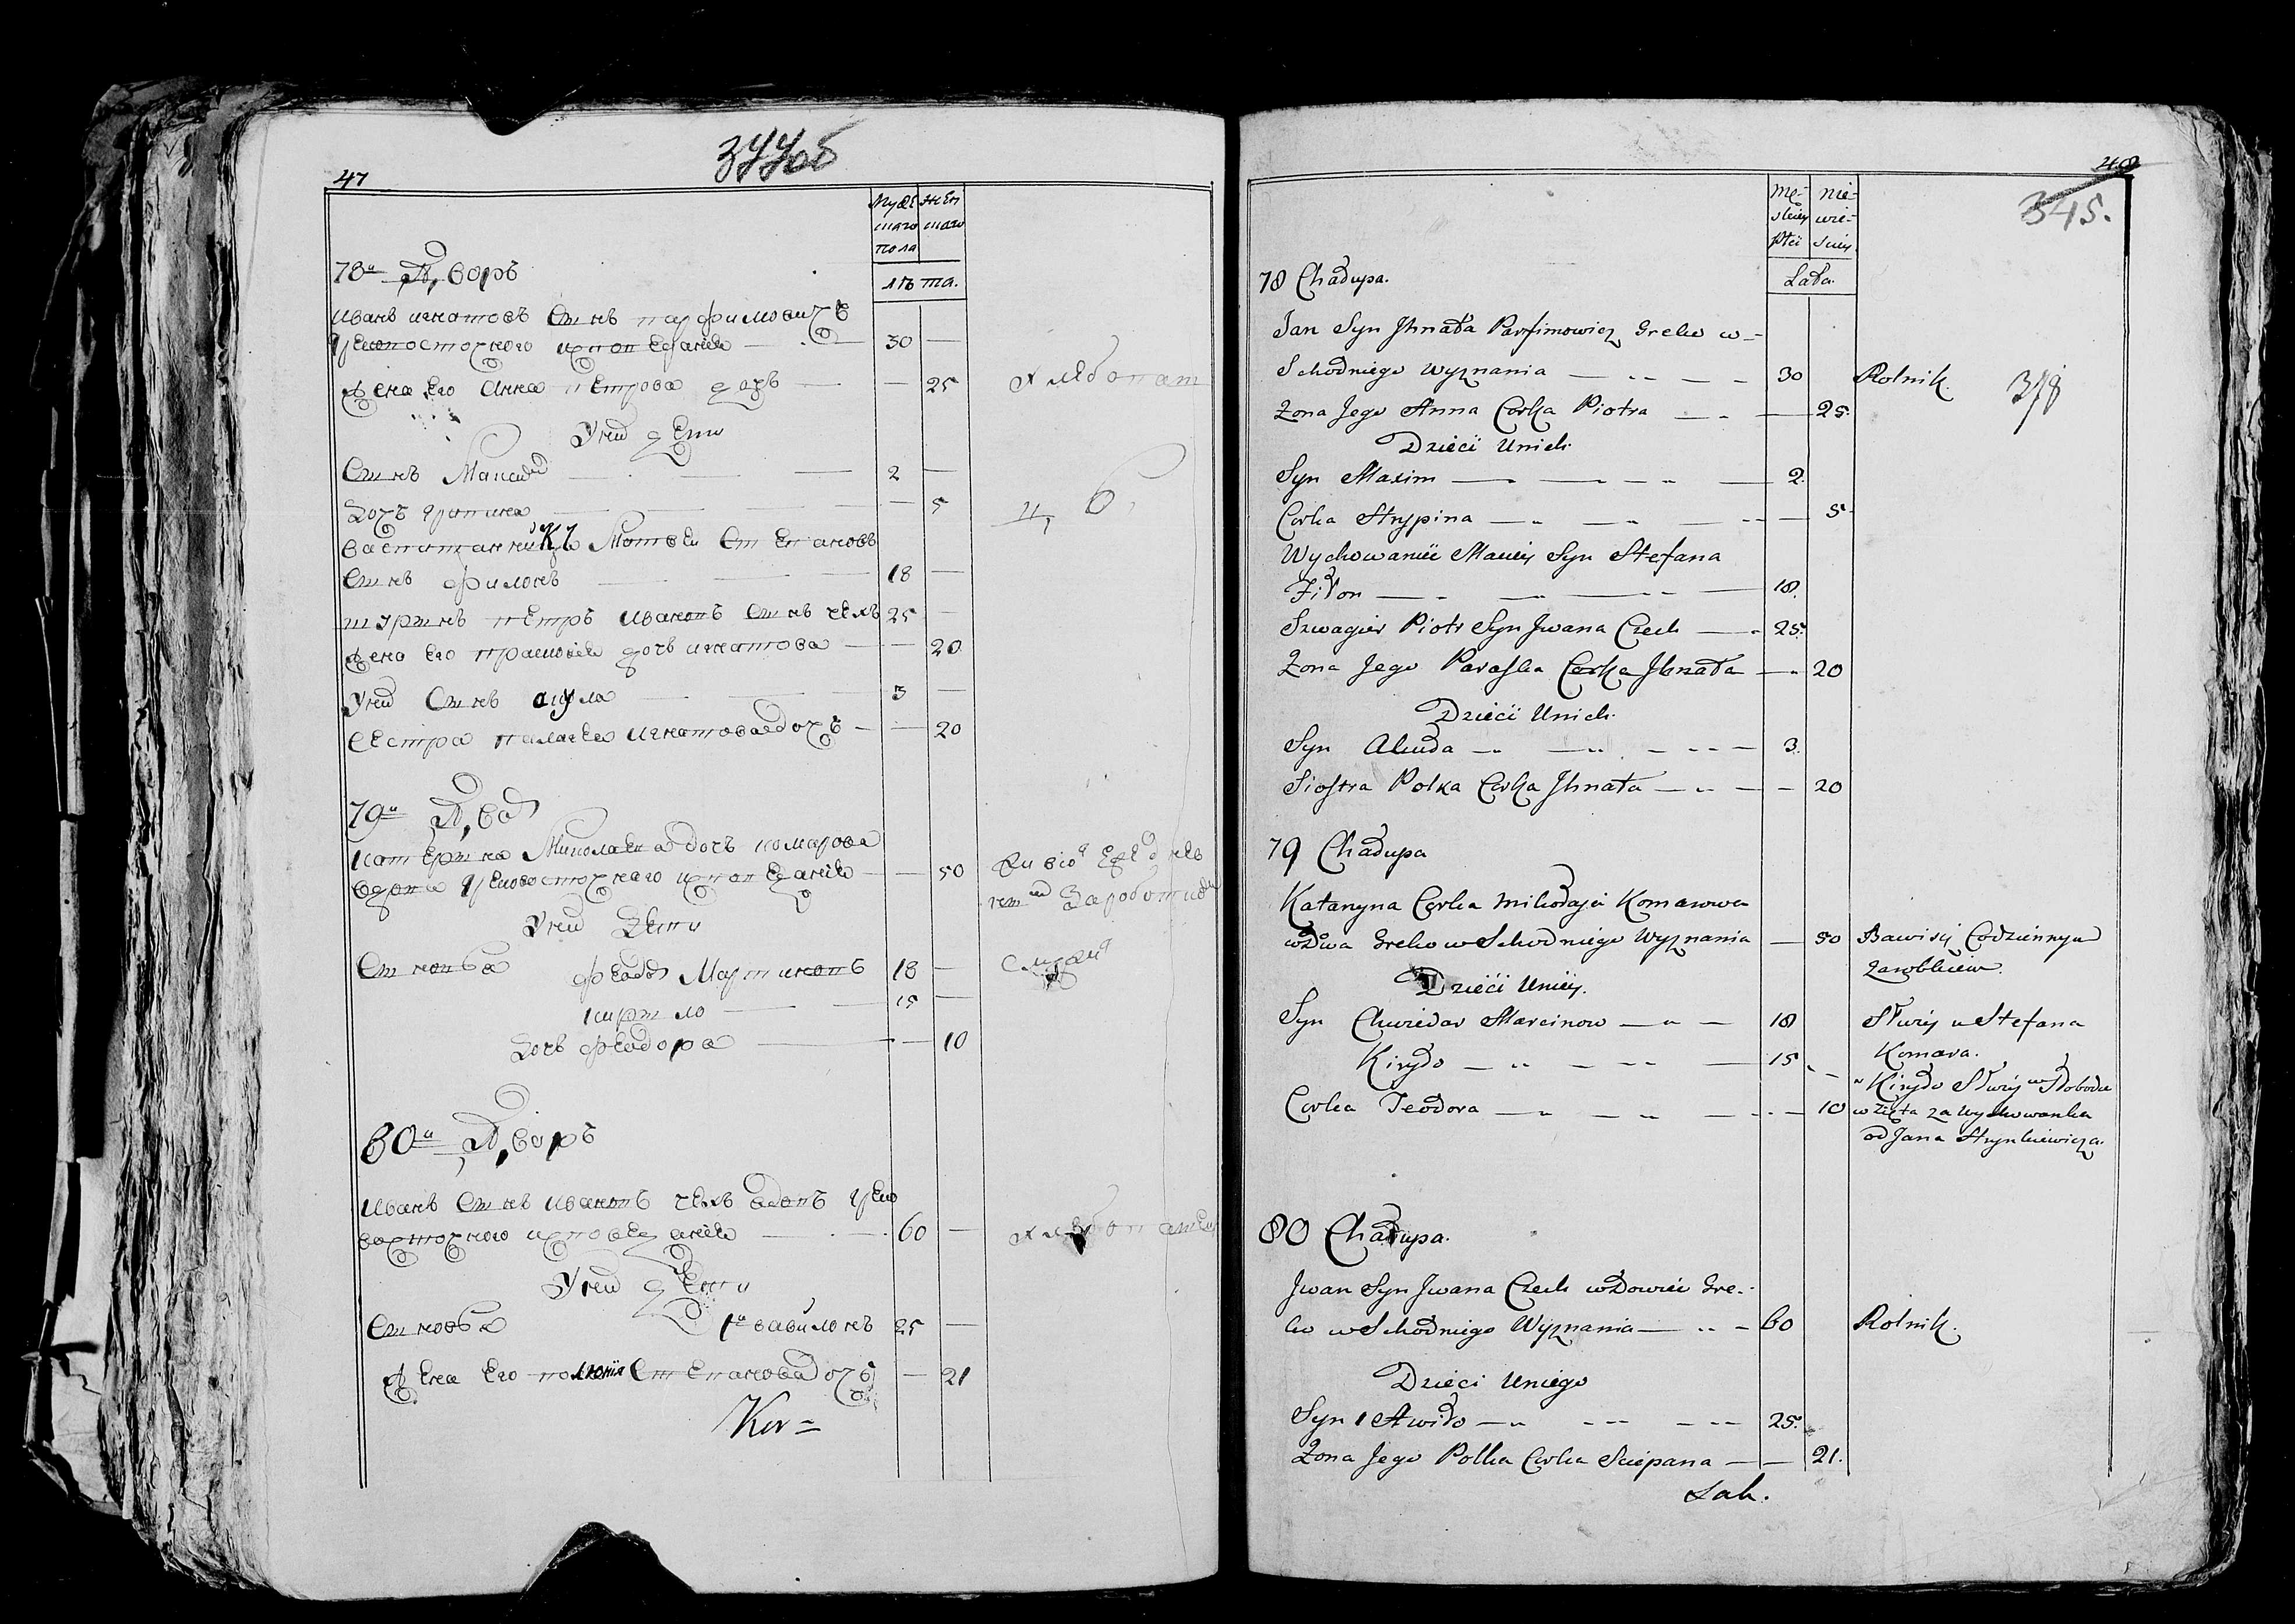 47
344об
Мужс женс
каго каго
пола
лѣта.
78й Дворъ
Иванъ игнатовъ Сынъ парфимовичъ
грековосточного исповеданія — 30 —
Жена Его Анна петрова дочъ — — 25 хлебопат
У нихъ дети
Сынъ Максимъ — 2 —
Дочъ — 5
Матвей Степановъ
Сынъ филонъ — 18 —
шурынъ петръ ивановъ Сынъ чехъ 25 —
жена Его прасковія дочъ игнатова — — 20
У нихъ Сынъ — 3 —
сестра палагея игнатова дочъ — — 20
79й Дво
катерына Миколаева дочъ комарова
вдова грековосточнаго исповеданія — — 50
У нихъ Дети
Сыновья феодоръ Мартиновъ 18 —
кирыло — 15 —
Дочъ феодора — — 10
80й Дворъ
Иванъ Сынъ ивановъ чехъ вдовъ греко
восточного исповеданія — 60 —
У нихъ дети
Сыновья 1й вавилонъ 25 —
Жена Его Степанова дочъ — 21
48
345.
Mę- nie-
skiey wie-
płci sciey
Lata.
78 Chałupa.
Jan Syn Jhnata Parfimowicz Greko w-
Schodniego Wyznania — 30 Rolnik. 378
Zona Jego Anna Corka Piotra — 25.
Dzieci Unich
Syn Maxim — 2.
Corka Hrypina — 5
Wychowaniec Maciey Syn Stefana
Fiłon — 18.
Szwagier Piotr Syn Jwana Czech — 25.
Zona Jego Paraska Corka Jhnata — 20
Dzieci Unich.
Syn Akuła — 3.
Siostra Polka Corka Jhnata — 20
79 Chałupa
Katarzyna Corka Mikołaja Komarowa
wdowa Greko wSchodniego Wyznania — 50 Bawi się Codziennym
zarobkiem.
Dzieci Uniey.
Syn Chwiedor Marcinow — 18 Służy u Stefana
Komara.
Kiryło — 15
Kiryło Służy w Słobodu
Corka Teodora — 10 wzięta za Wychowanka
od Jana Hrynkiewicza.
80 Chałupa.
Jwan Syn Jwana Czech wdowiec Gre-
ko wSchodniego Wyznania — 60 Rolnik.
Dzieci Uniego
Syn 1 Awiło — 25.
Zona Jego Polka Corka Sciepana — 21.